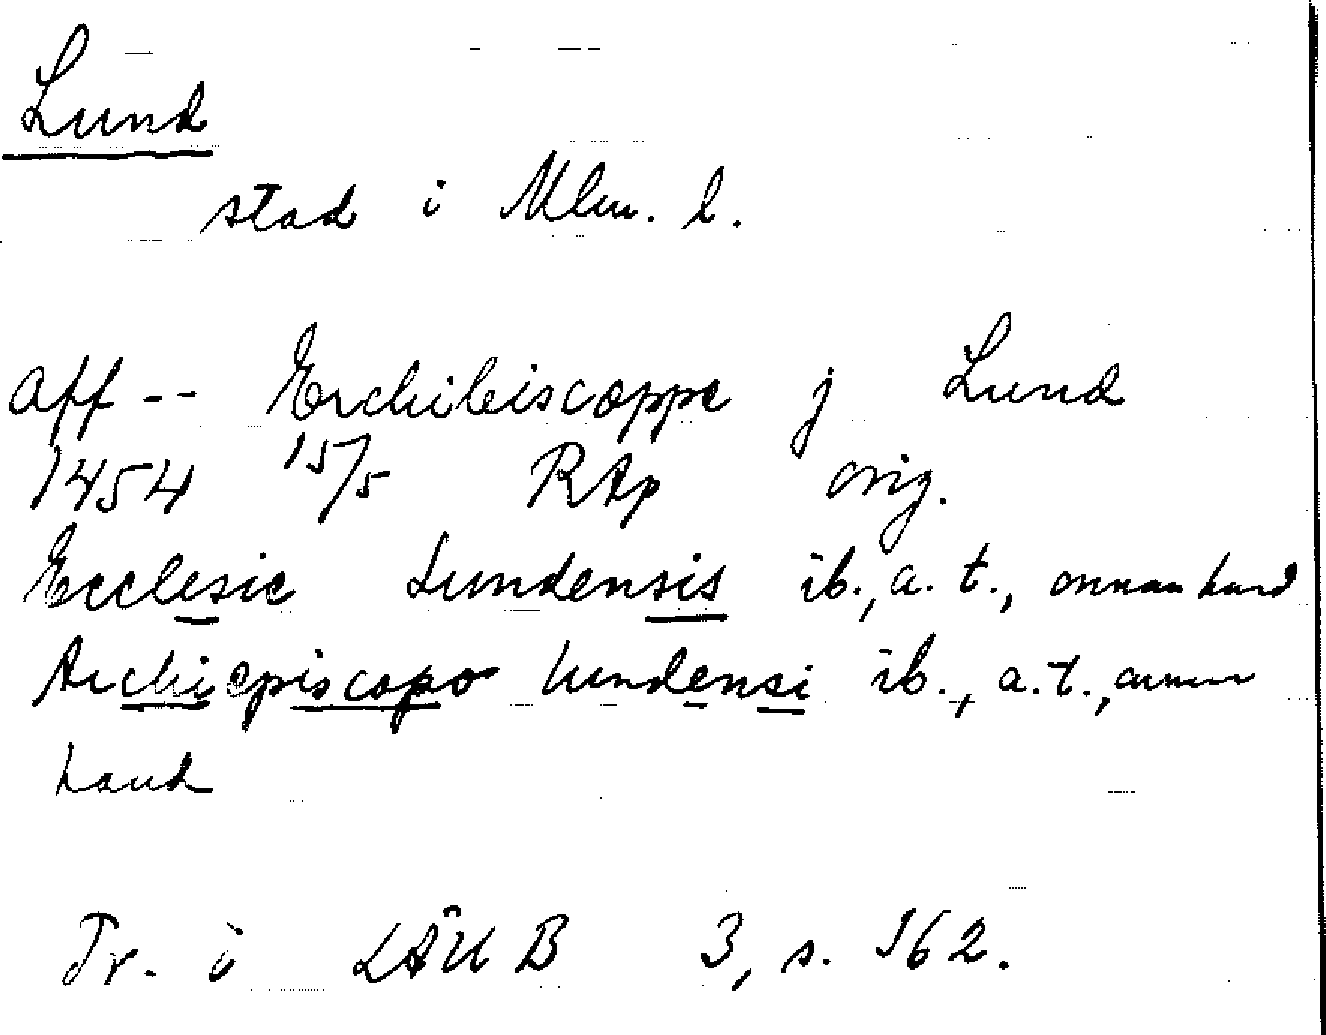 Lund
stad i Mlm. l.
aff -- Erchibiscoppe j Lund
1454 15/5 RAp orig.
Ecclesie Lundensis ib., a. t., annan hand
Archiepiscopo lundensi ib., a. t., annan
hand
Tr. i LÄU B 3, s. 162.